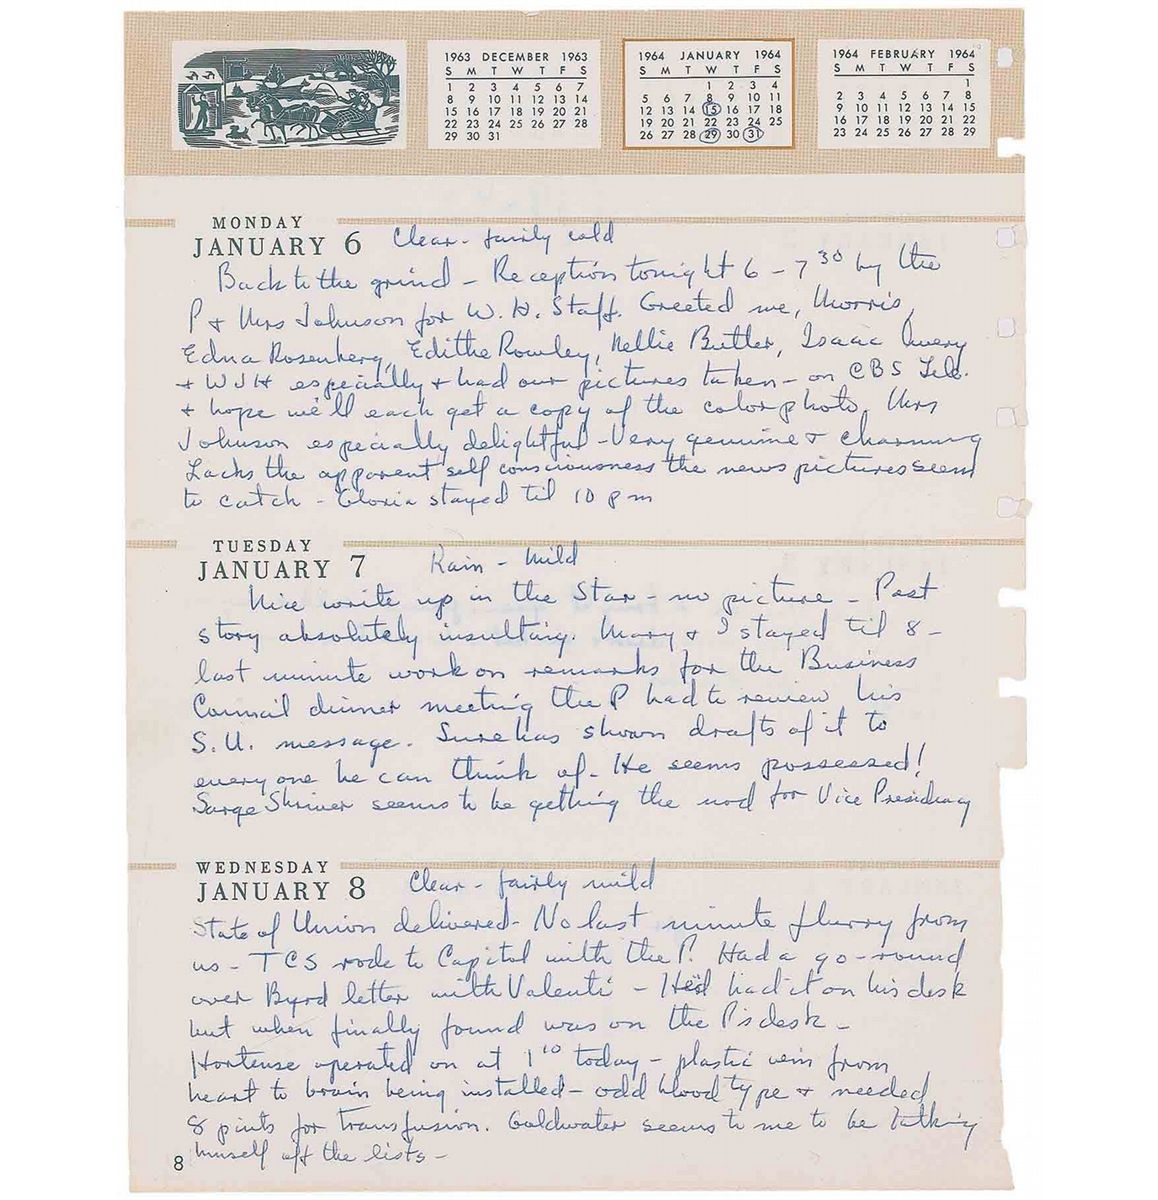 1963 DECEMBER 1963
S M T W T F S
1 2 3 4 5 6 7
8 9 10 11 12 13 14
15 16 17 18 19 20 21
22 23 24 25 26 27 28
29 30 31
1964 JANUARY 1964
S M T W T F S
1 2 3 4
5 6 7 8 9 10 11
12 13 14 15 16 17 18
19 20 21 22 23 24 25
26 27 28 29 30 31
1964 FEBRUARY 1964
S M T W T F S
1
2 3 4 5 6 7 8
9 10 11 12 13 14 15
16 17 18 19 20 21 22
23 24 25 26 27 28 29
MONDAY
JANUARY 6 Clear - fairly cold
Back to the grind - Reception tonight 6 - 7 30 by the
P & Mrs Johnson for W. H. Staff. Greeted me, Morris,
Edna Rosenberg, Edithe Rowley, Nellie Butler, Isaac Avery
& WJH especially & had our pictures taken - on CBS Tele.
& hope we'll each get a copy of the color photo. Mrs
Johnson especially delightful - Very genuine & charming
Lacks the apparent self consciousness the news pictures seem
to catch - Gloria stayed til 10 pm
TUESDAY
JANUARY 7 Rain - mild
Nice write up in the Star - no picture - Post
story absolutely insulting. Mary & I stayed til 8 -
last minute work on remarks for the Business
Council dinner meeting the P had to review his
S. U. message. Sure has shown drafts of it to
everyone he can think of - He seems possessed!
Sarge Shriver seems to be getting the nod for Vice Presidency
WEDNESDAY
JANUARY 8 Clear - fairly mild
State of Union delivered - No last minute flurry from
us - TCS rode to Capitol with the P. Had a go-round
over Byrd letter with Valenti - He'd had it on his desk
but when finally found was on the P's desk -
Hortense operated on at 1 10 today - plastic vein from
heart to brain being installed - odd blood type & needed
8 pints for transfusion. Goldwater seems to me to be talking
himself off the lists -
8